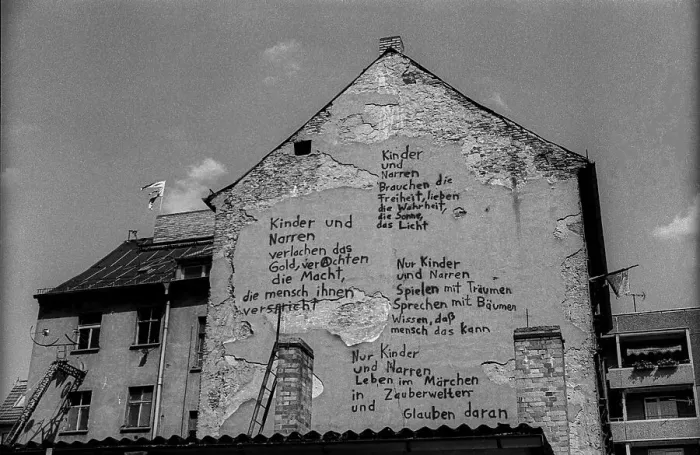 Kinder
und
Narren
Brauchen die
Freiheit, lieben
die Wahrheit,
die Sonne,
das Licht
Kinder und
Narren
verlachen das
Gold, verachten
die Macht,
die mensch ihnen
verspricht
Nur Kinder
und Narren
Spielen mit Träumen
Sprechen mit Bäumen
Wissen, daß
mensch das kann
Nur Kinder
und Narren
Leben im Märchen
in Zauberwelten
und Glauben daran